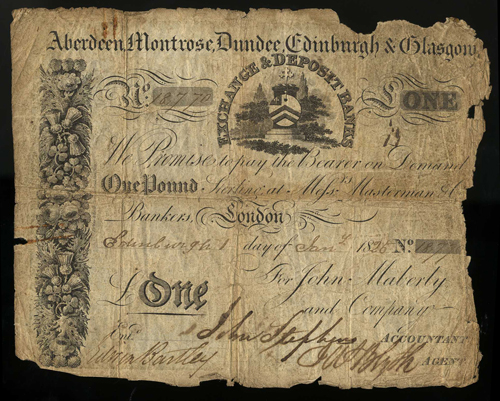 Aberdeen, Montrose, Dundee, Edinburgh & Glasgow
EXCHANGE & DEPOSIT BANKS
No. £ONE
We Promise to pay the Bearer on Demand
One Pound Sterling at Messrs. Masterman & Co
Bankers, London
Edinburgh 1 day of Jany. 1825 No
For John Maberly
and Company
£ One
John Stephen ACCOUNTANT
Entd. AGENT